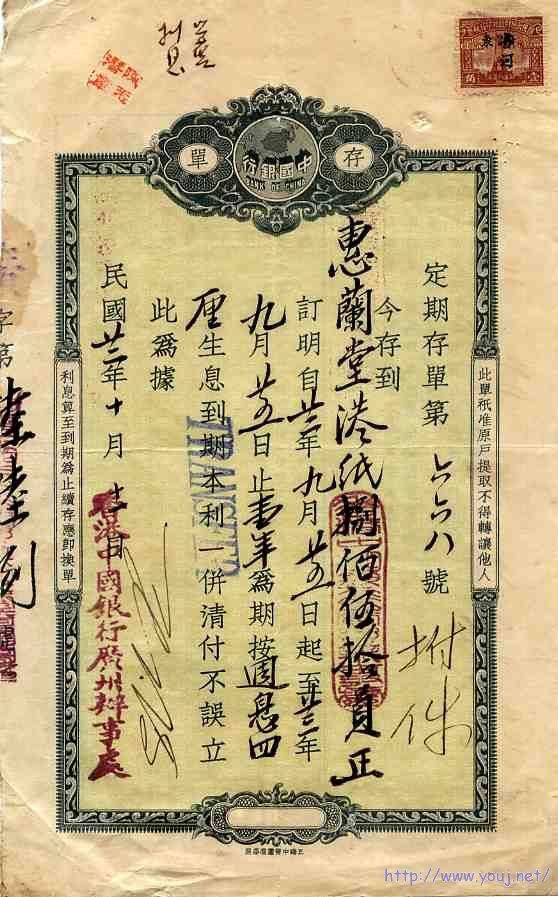 利息
存單
中國銀行
BANK OF CHINA
此單祇准原戶提取不得轉讓他人
定期存單第六六八號
附件
今存到
惠蘭堂港紙捌佰伍拾員正
訂明自廿二年九月廿五日起至廿三年
九月廿五日止壹年為期按週息四
厘生息到期本利一併清付不誤立
TRANSFER
此為據
民國廿二年十月十一日
香港中國銀行廣州辦事處
利息算至到期為止續存應即換單
字第
http://www.youj.net/